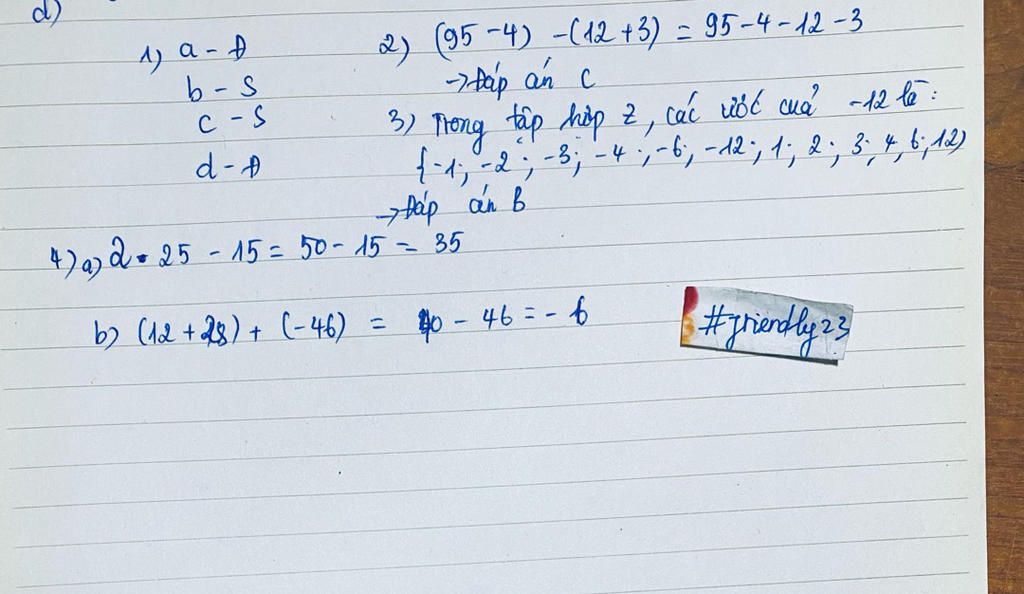 d)
1) a - Đ
b - S
c - S
d - Đ
2) (95 - 4) - (12 + 3) = 95 - 4 - 12 - 3
→ Đáp án C
3) Trong tập hợp Z, các ước cuả -12 là :
{-1; -2; -3; -4; -6; -12; 1; 2; 3; 4, 6; 12)
→ Đáp án B
4) a) 2 . 25 - 15 = 50 - 15 = 35
b) (12 + 28) + (-46) = 40 - 46 = - 6
#friendly23